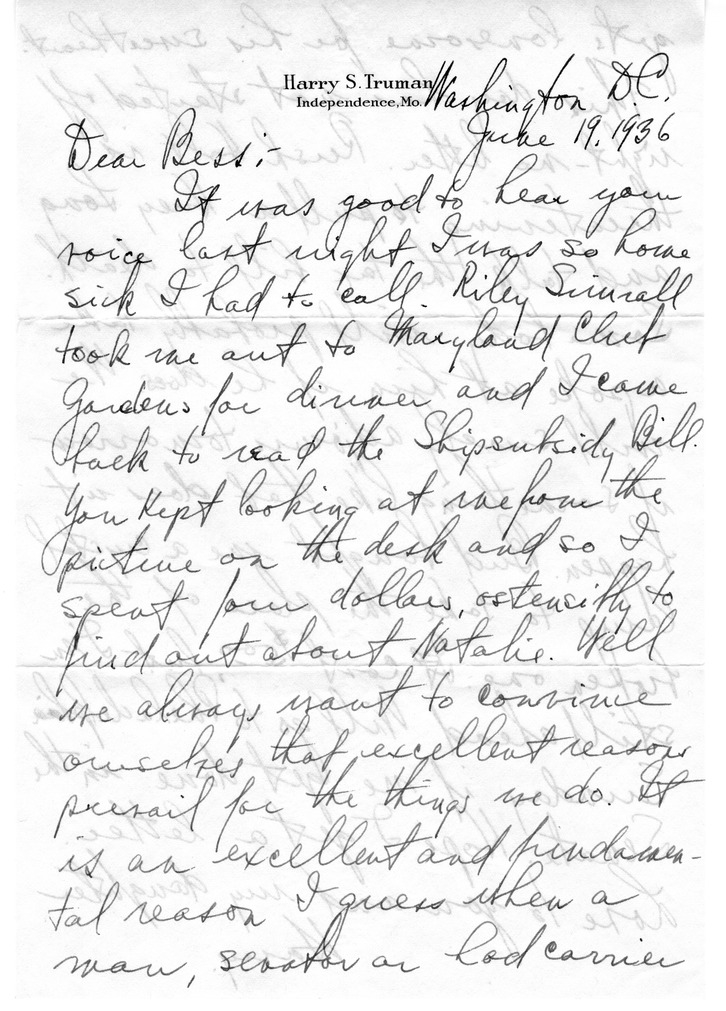 Harry S. Truman
Independence, Mo.
Washington D.C.
June 19, 1936
Dear Bess:-
It was good to hear your
voice last night I was so home
sick I had to call. Riley Simrall
took me out to Maryland Club
Gardens for dinner and I came
back to read the Shipsubsidy Bill.
You kept looking at me from the
picture on the desk and so I
spent four dollars, ostensibly to
find out about Natalie. Well
we always want to convince
ourselves that excellent reasons
prevail for the things we do. It
is an excellent and fundamen-
tal reason I guess when a
man, senator or hod carrier